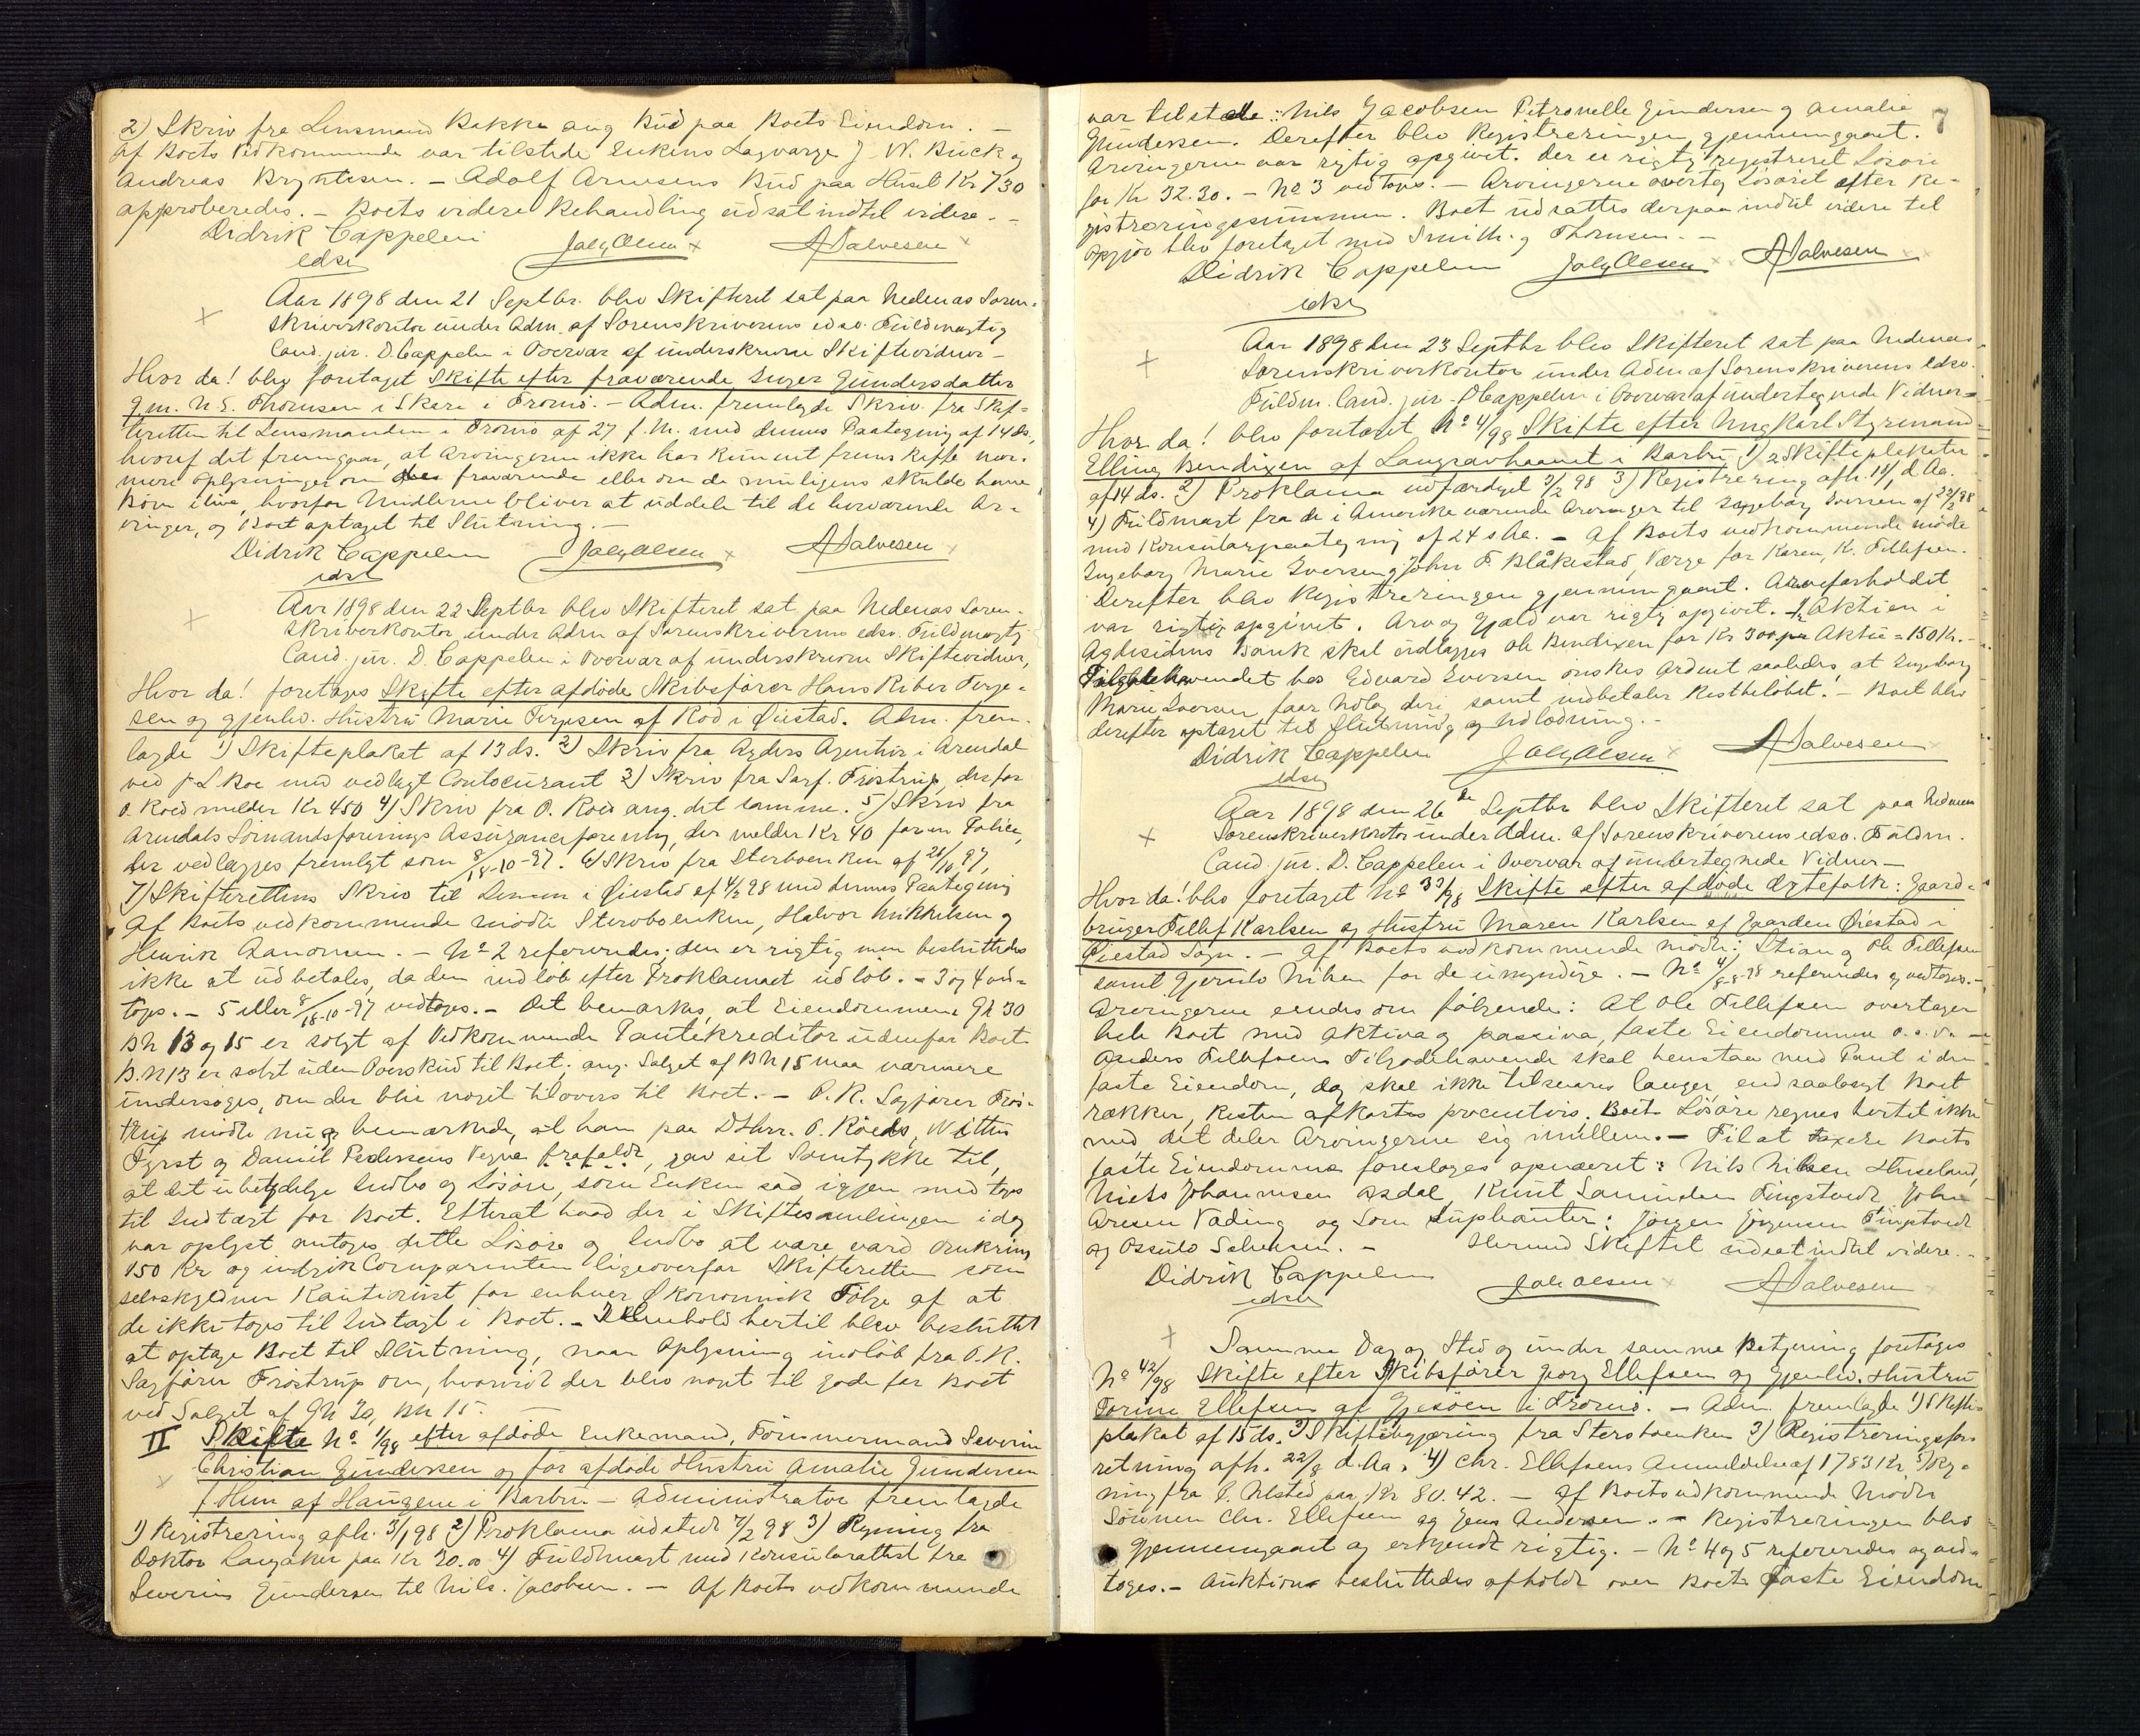 2) Skriv fra Lensmand Bakke ang Bud paa Boets Eiendom. —
Af Boets Vedkommende var tilstede Enkens Lagværge J. W. Buck og
Andreas Bryntesen. — Adolf Arnesens Bud paa Huset Kr 730
approberedes. — Boets videre Behandling udsat indtil videre. —
Didrik Cappelen
edsv
Joh Olsen x
A Salvesen x
x
Aar 1898 den 21 Septbr. blev Skifteret sat paa Nedenæs Soren-
skriverkontor under Adm. af Sorenskriverens edsv. Fuldmægtig
Cand. jur. D. Cappelen i Overvær af underskrevne Skiftevidner —
Hvor da! blev foretaget Skifte efter fraværende Inger Gundersdatter
g.m. N S. Thomsen i Skare i Tromø. — Adm. fremlagde Skriv fra Skif-
teretten til Lensmanden i Tromø af 27 f. M. med dennes Paategning af 14 ds,
hvoraf det fremgaar, at Arvingerne ikke har kunnet fremskaffe nær-
mere Oplysninger om den fraværende eller om de muligens skulde have
Børn ilive, hvorfor Midlerne bliver at uddele til de herværende Ar-
vinger, og Boet optaget til Slutning. —
Didrik Cappelen
edsv
Joh Olsen x
A Salvesen x
x
Aar 1898 den 22 Septbr blev Skifteret sat paa Nedenæs Soren-
skriverkontor under Adm af Sorenskriverens edsv. Fuldmægtig
Cand. jur. D. Cappelen i Overvær af underskrevne Skiftevidner,
Hvor da! foretages Skifte efter afdøde Skibsfører Hans Riber Terje-
sen og gjenlev. Hustru Marie Terjesen af Rød i Øiestad. Adm. frem-
lagde 1) Skifteplakat af 13 ds. 2) Skriv fra Agders Agentur i Arendal
ved J. L Boe med vedlagt Contocurant 3) Skriv fra Sagf. Frøstrup, der for
O. Roed melder Kr 450 4) Skriv fra O. Roed ang. det samme. 5) Skriv fra
Arendals Sømandsforenings Assuranceforening, der melder Kr 40 for en Police,
der vedlægges fremlagt som 8/18-10-97. 6) Skriv fra Sterboenken af 26/10 97,
7) Skifterettens Skriv til Lensm i Øiestad af 4/2 98 med dennes Paategning
Af Boets vedkommende mødte Sterboenken, Halvor Mikkelsen og
Henrik Aanonsen. — No 2 refereredes; den er rigtig men besluttedes
ikke at udbetales, da den indløb efter Proklamaet udløb. — 3 og 4 ved-
toges. — 5 eller 8/18-10-97 vedtoges. — Det bemærkes, at Eiendommen Gh 30
Bh 13 og 15 er solgt af Vedkommende Pantekreditor udenfor Boet
B.N 13 er solgt uden Overskud til Boet; ang. Salget af BN 15 maa nærmere
undersøges, om der blir noget tilovers til Boet. — O. R. Sagfører Frøs-
trup mødte nu og bemærkede, at han paa DHrr. O. Roeds, Witths
Fyrst og Daniel Pedersens Vegne frafaldt, gav sit Samtykke til,
at det ubetydelige Indbo og Løsøre, som Enken sad igjen med toges
til Indtægt for Boet. Efterat hvad der i Skiftesamlingen idag
var oplyst antoges dette Løsøre og Indbo at være værd omkring
150 Kr og indgik Comparenten ligeoverfor Skifteretten som
selvskyldner Kautionist for enhver Økonomisk Følge af at
de ikke toges til Indtægt i Boet. — I Henhold hertil blev besluttet
at optage Boet til Slutning, naar Oplysning indløb fra O. R.
Sagfører Frøstrup om, hvorvidt der blev noget til gode for Boet
ved Salget af Gh 30, Bh 15. —
II Skifte No 1/98 efter afdøde Enkemand, Tømmermand Severin
x
Christian Gundersen og før afdøde Hustru Amalie Gundersen
f. Hem af Haugene i Barbu — Administrator fremlagde
1) Registrering afh. 3/1 98 2) Proklama udstedt 7/2 98 3) Regning fra
Doktor Langaker paa Kr 30.00 4) Fuldmagt med Konsularattest fra
Severin Gundersen til Nils Jacobsen. — Af Boets vedkommende
7
var tilstede: Nils Jacobsen Petronelle Gundersen og Amalie
Gundersen. Derefter blev Registreringen gjennemgaaet.
Arvingerne var rigtig opgivet. Der er rigtig registreret Løsøre
for Kr 32.30. — No 3 vedtoges. — Arvingerne overtog Løsøret efter Re-
gistreringssummen. Boet udsattes derpaa indtil videre til
opgjør blev foretaget med Smith og Thomsen. —
Didrik Cappelen
edsv
Joh Olsen x
A Salvesen x
x
Aar 1898 den 23 Septbr blev Skifteret sat paa Nedenæs
Sorenskriverkontor under Adm af Sorenskriverens edsv.
Fuldm. Cand. jur. D Cappelen i Overvær af undertegnede Vidner —
Hvor da! blev foretaget No 4/98 Skifte efter Ungkarl Styrmand
Elling Bendixen af Langsævhavnet i Barbu 1) 2 Skifteplakater
af 14 ds. 2) Proklama udfærdiget 3/2 98 3) Registrering afh. 11/1 d. Aa.
4) Fuldmagt fra de i Amerika værende Arvinger til Ingeborg Iversen af 22/2 98
med Konsularpaategning af 24 s Aa. — Af Boets vedkommende mødte
Ingeborg Marie Iversen og John F. Blåkestad, Værge for Karen K. Tellefsen.
Derefter blev Registreringen gjennemgaaet. Arveforholdet
var rigtig opgivet. Arv og Gjæld var rigtig opgivet. 1/2 Aktien i
Agdesidens Bank skal udlægges Ole Bendixen for Kr 300 pr Aktie = 150 Kr. —
Tilgodehavendet hos Edvard Iversen ønskes ordnet saaledes, at Ingeborg
Marie Iversen faar Udlæg deri samt indbetaler Restbeløbet. — Boet blev
derefter optaget til Slutning og Udlodning. —
Didrik Cappelen
edsv
Joh Olsen x
A Salvesen x
x
Aar 1898 den 26de Septbr blev Skifteret sat paa Nedenæs
Sorenskriverkontor under Adm. af Sorenskriverens edsv. Fuldm.
Cand. jur. D. Cappelen i Overvær af undertegnede Vidner —
Hvor da! blev foretaget No 33/98 Skifte efter afdøde Ægtefolk: Gaard-
bruger Tellef Karlsen og Hustru Maren Karlsen af Gaarden Øiestad i
Øiestad Sogn. — Af Boets vedkommende mødte: Stian og Ole Tellefsen
samt Gjerulv Nilsen for de umyndige. — No 4/8-8-98 refereredes og vedtoges. —
Arvingerne enedes om følgende: At Ole Tellefsen overtager
hele Boet med aktiva og passiva, faste Eiendomme o. s. v. —
Anders Tellefsens Tilgodehavende skal henstaa med Pant i den
faste Eiendom, dog skal ikke tilsvares længer, end saalangt Boet
rækker, Resten afkortes procentvis. Boets Løsøre regnes hertil ikke
med det deler Arvingerne sig imellem. — Til at taxere Boets
faste Eiendomme foresloges opnævnt: Nils Nilsen Huseland,
Niels Johannesen Asdal, Knut Samuelsen Tingstvedt, John
Aresen Vading og som Supleanter: Jørgen Jørgensen Tingstvedt
og Ossulv Salvesen. — Hermed Skiftet udsat indtil videre. —
Didrik Cappelen
edsv
Joh Olsen x
A Salvesen x
x
Samme Dag og Sted og under samme Betjening foretoges
No 42/98 Skifte efter Skibsfører Georg Ellefsen og Gjenlev. Hustru
Torine Ellefsen af Gjesøen i Tromø. — Adm. fremlagde 1) Skifte-
plakat af 15 ds. 2) Skiftebegjæring fra Sterboenken 3) Registreringsfor-
retning afh. 22/8 d. Aa. 4) Chr. Ellefsens Anmeldelse af 1783 Kr 5) Reg-
ning fra C. Ulsted paa Kr 80.42. — Af Boets vedkommende Mødte
Sønnen Chr. Ellefsen og Jens Andersen. — Registreringen blev
gjennemgaaet og erkjendt rigtig. — No 4 og 5 refereredes og ved-
toges. — Auktion besluttedes afholdt over Boets faste Eiendom